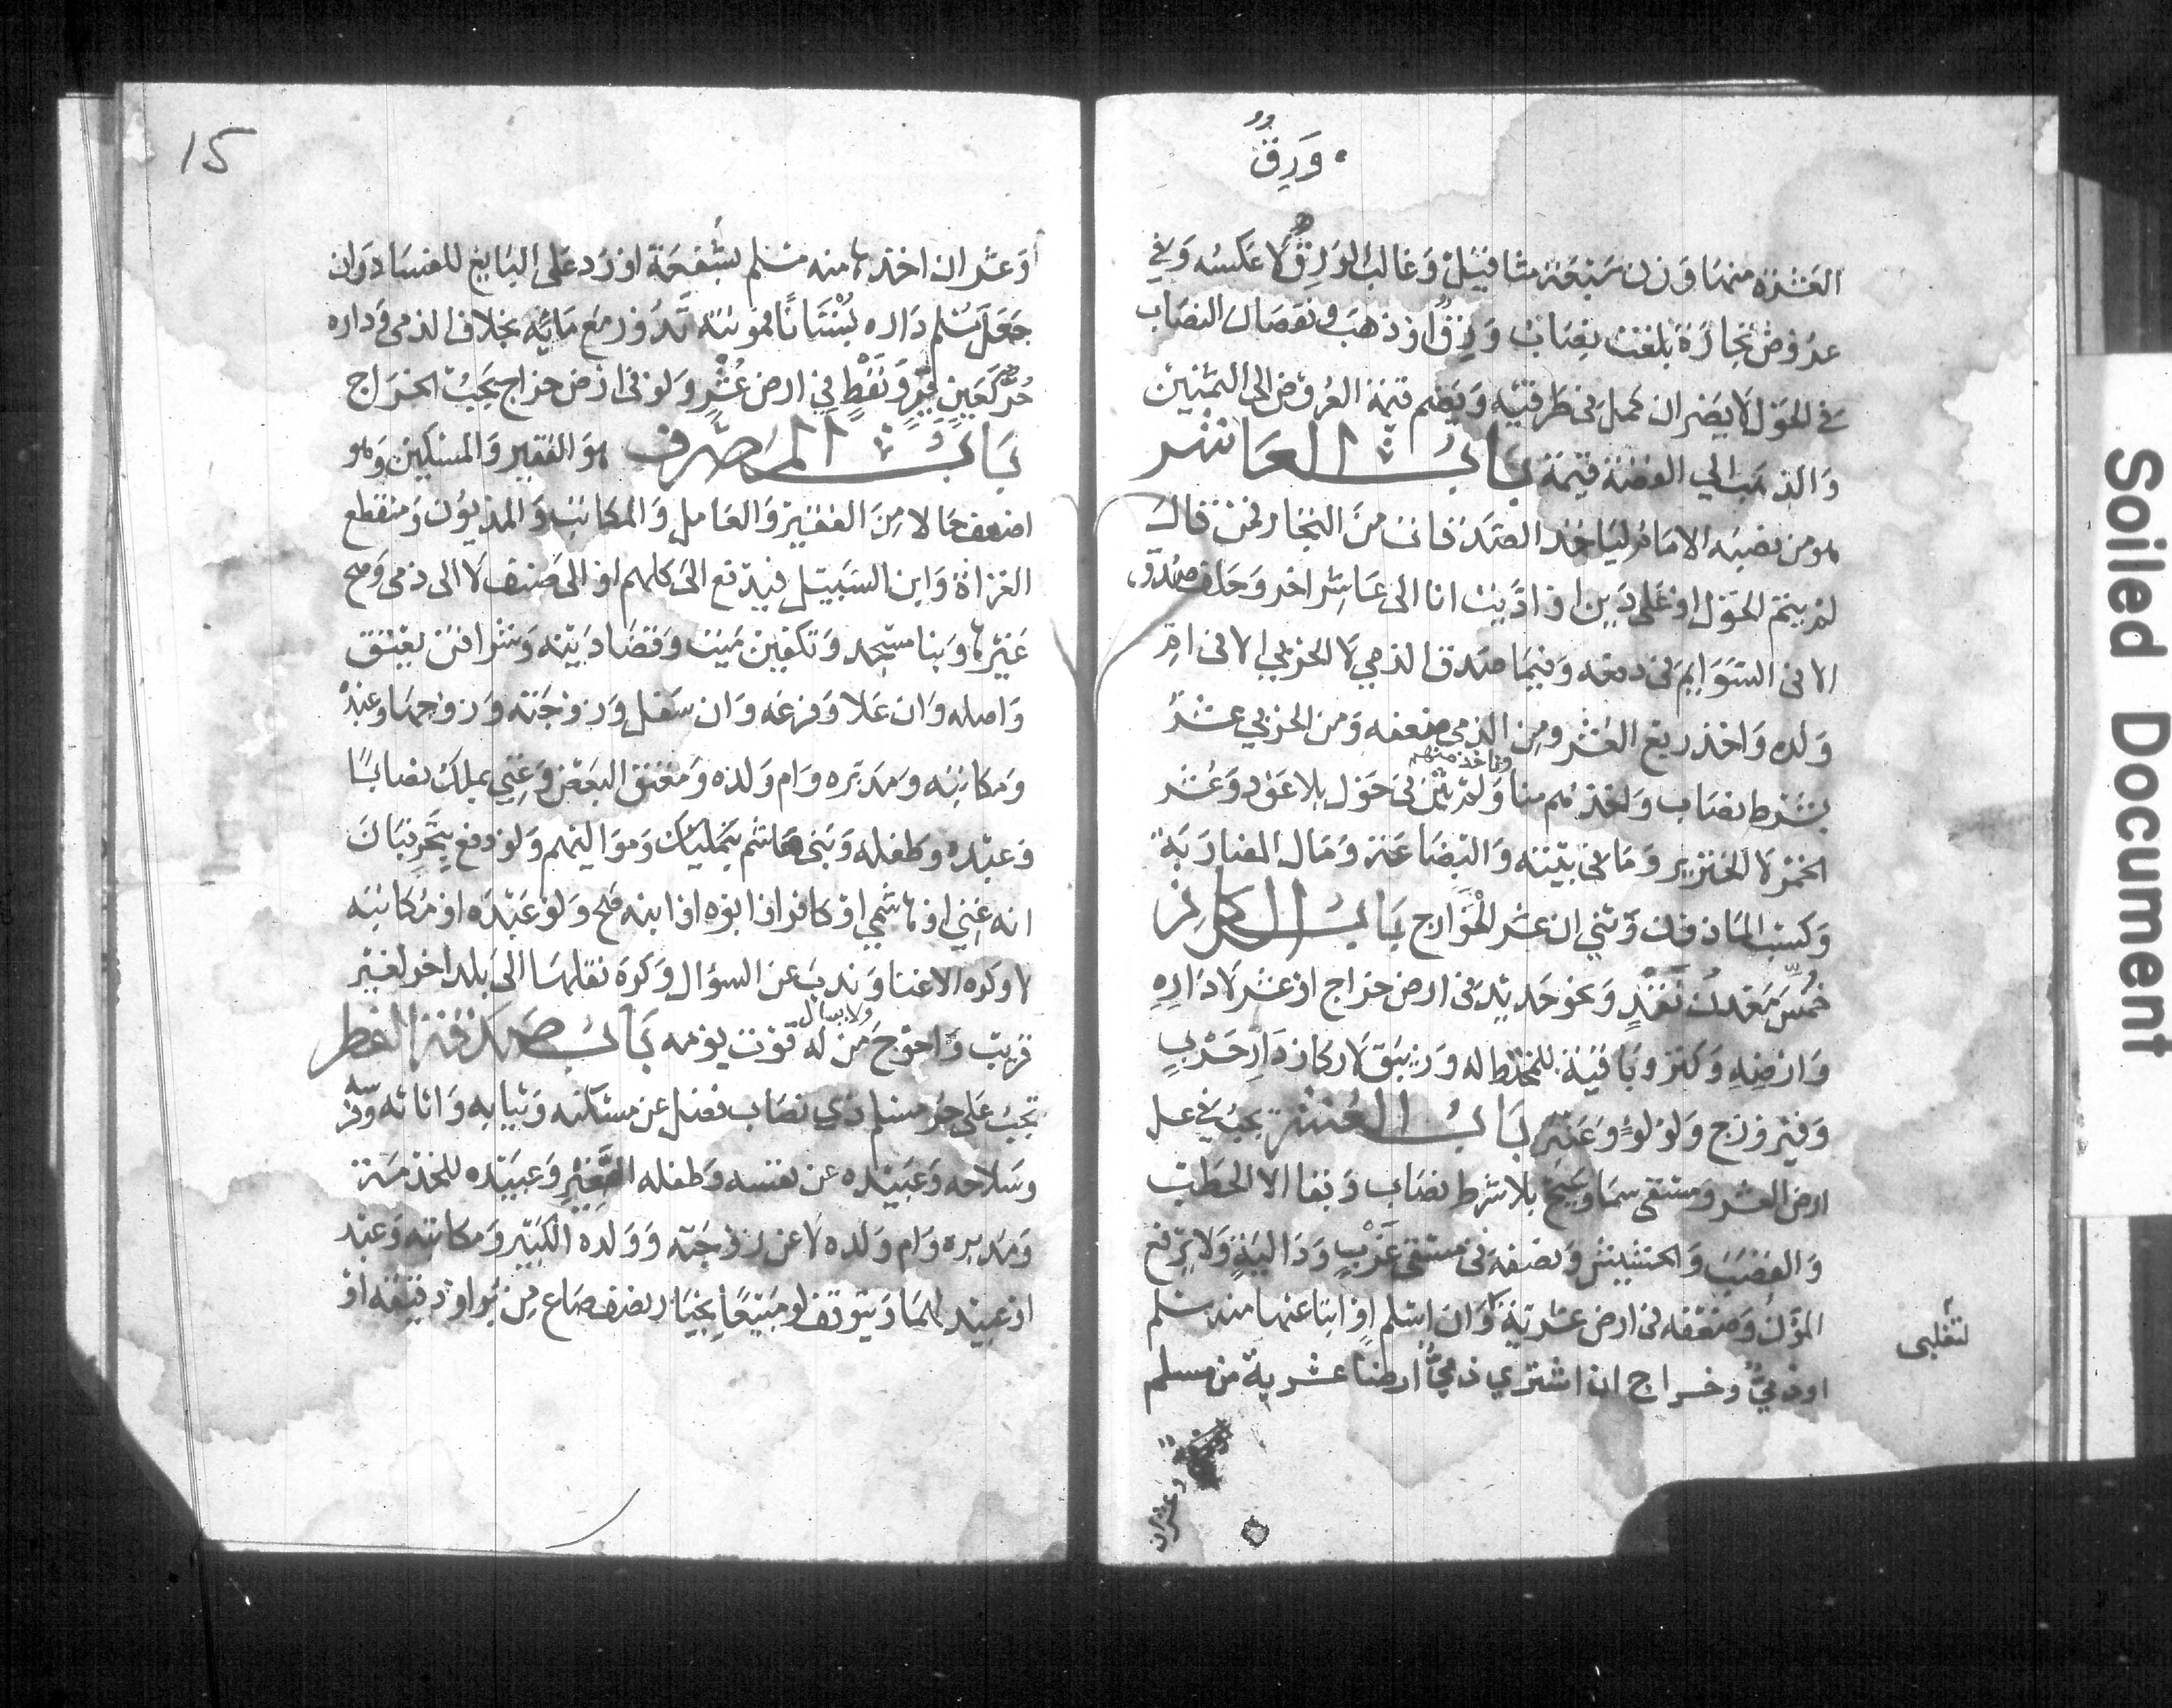 ورق
العشرة منها وزن سبعة مثاقيل وغالب الورق ورق لا عكسه وفي
عروض تجارة بلغت نصاب ورق او ذهب ونقصان النصاب
في الحول لا يضر ان كمل في طرفيه ويضم قيمة العروض الى الثمنين
والذهب الي الفضة قيمة باب العاشر
هو من نصبه الامام لياخذ الصدقات من التجار فمن قال
لم يتم الحول او على دين او اديت انا الى عاشر اخر وحلف صدق
الا في السوائم في دفعه وفيما صدق الذمي لا الحربي الا في ام
ولده واخذ ربع العشر ومن الذمي ضعفه ومن الحربي عشر
واخذ منهم
بشرط نصاب واخذهم منا ولم يثن في حول بلا عود وعشر
الخمر لا الخنزير وما في بيته والبضاعة ومال المضاربة
وكسب الماذون وثني ان عشر الخوارج باب الركاز
خمس معدن نقد ونحو حديد في ارض خراج او عشر لا داره
وارضه وكنز وباقيه للمختط له وزيبق لا ركاز دار حرب
وفيروزج ولؤلؤ وعنبر باب العشر يجب في عسل
ارض العشر ومسقى سماء وسيح بلا شرط نصاب وبقا الا الحطب
والقصب والحشيش ونصفه في مسقى غرب ودالية ولا ترفع
المؤن وضعفه في ارض عشرية وان اسلم او ابتاعها منه مسلم
لتغلبى
او ذمي وخراج ان اشتري ذمي ارضا عشرية من مسلم
وعشر ان
15
وعشر ان اخذها منه مسلم بشفعة او رد على البايع للفساد وان
جعل مسلم داره بستانا فمونته تدور مع مائه بخلاف الذمى وداره
حر كعين قير ونفط في ارض عشر ولو في ارض خراج يجب الخراج
باب المصرف هو الفقير والمسكين وهو
اضعف حالا من الفقير والعامل والمكاتب والمديون ومنقطع
الغزاة وابن السبيل فيدفع الى كلهم او الى صنف لا الى ذمى وصح
غيرها وبنا مسجد وتكفين ميت وقضا دينه وشرا قن يعتق
واصله وان علا وفرعه وان سفل وزوجته وزوجها وعبده
ومكاتبه ومدبره وام ولده ومعتق البعض وغني يملك نصابا
وعبده وطفله وبني هاشم بتمليك ومواليهم ولو دفع بتحر فبان
انه غني او هاشمي او كافر او ابوه او ابنه صح ولو عبده او مكاتبه
لا وكره الاغنا وندب عن السؤال وكره نقلها الى بلد اخر لغير
ولا يسال
قريب واحوج من له قوت يومه باب صدقة الفطر
تجب على حر مسلم ذي نصاب فضل عن مسكنه وثيابه واثاثه وفرسه
وسلاحه وعبيده عن نفسه وطفله الصغير وعبيده للخدمة
ومدبره وام ولده لا عن زوجته وولده الكبير ومكاتبه وعبد
او عبيد لهما ويتوقف لو مبيعا بخيار نصف صاع من بر او دقيقه او
Soiled Document